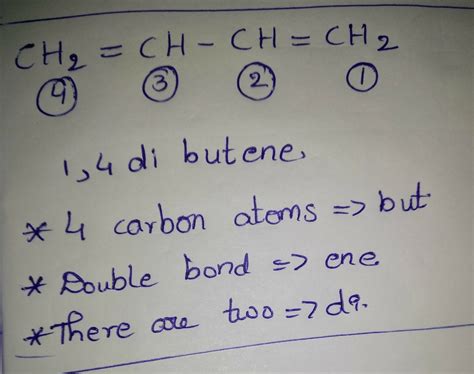 CH₂ = CH - CH = CH₂
④ ③ ② ①
1,4 di butene,
* 4 carbon atoms => but
* Double bond => ene
* There are two => di.